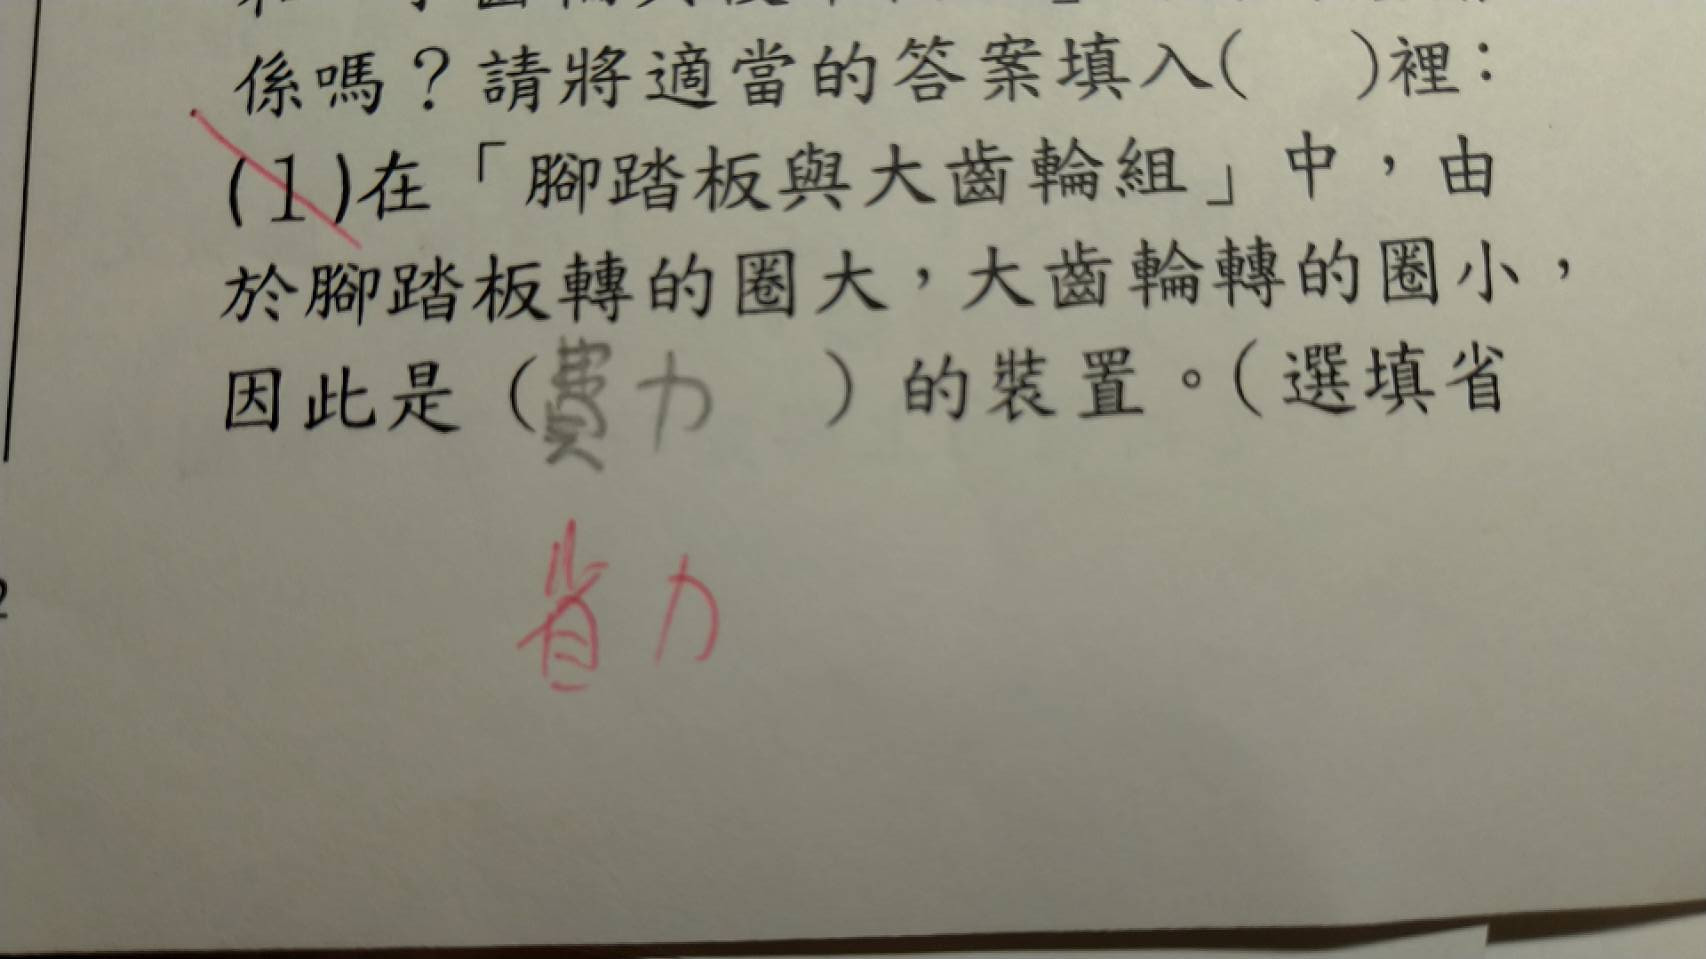 係嗎？請將適當的答案填入(　)裡：
(1)在「腳踏板與大齒輪組」中，由
於腳踏板轉的圈大，大齒輪轉的圈小，
因此是（費力　）的裝置。(選填省
省力
2